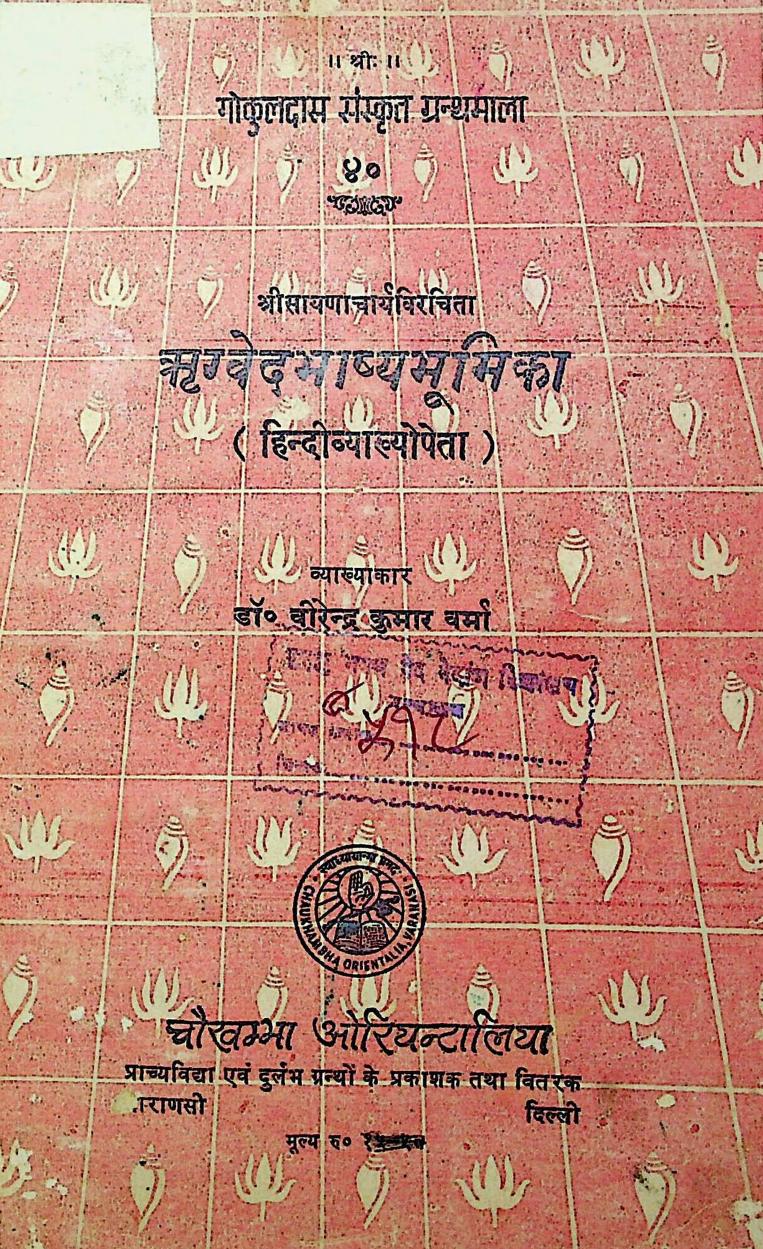 ॥ श्रीः ॥
गोकुलदास संस्कृत ग्रन्थमाला
४०
श्रीसायणाचार्यविरचिता
ऋग्वेदभाष्यभूमिका
( हिन्दीव्याख्योपेता )
व्याख्याकार
डॉ० वीरेन्द्र कुमार वर्मा
वेद वेदांग विद्यालय
५१८
स्वाध्यायान्मा प्रमदः
CHAUKHAMBHA ORIENTALIA, VARANASI
चौखम्भा ओरियन्टालिया
प्राच्यविद्या एवं दुर्लभ ग्रन्थों के प्रकाशक तथा वितरक
ाराणसी दिल्ली
मूल्य रु०